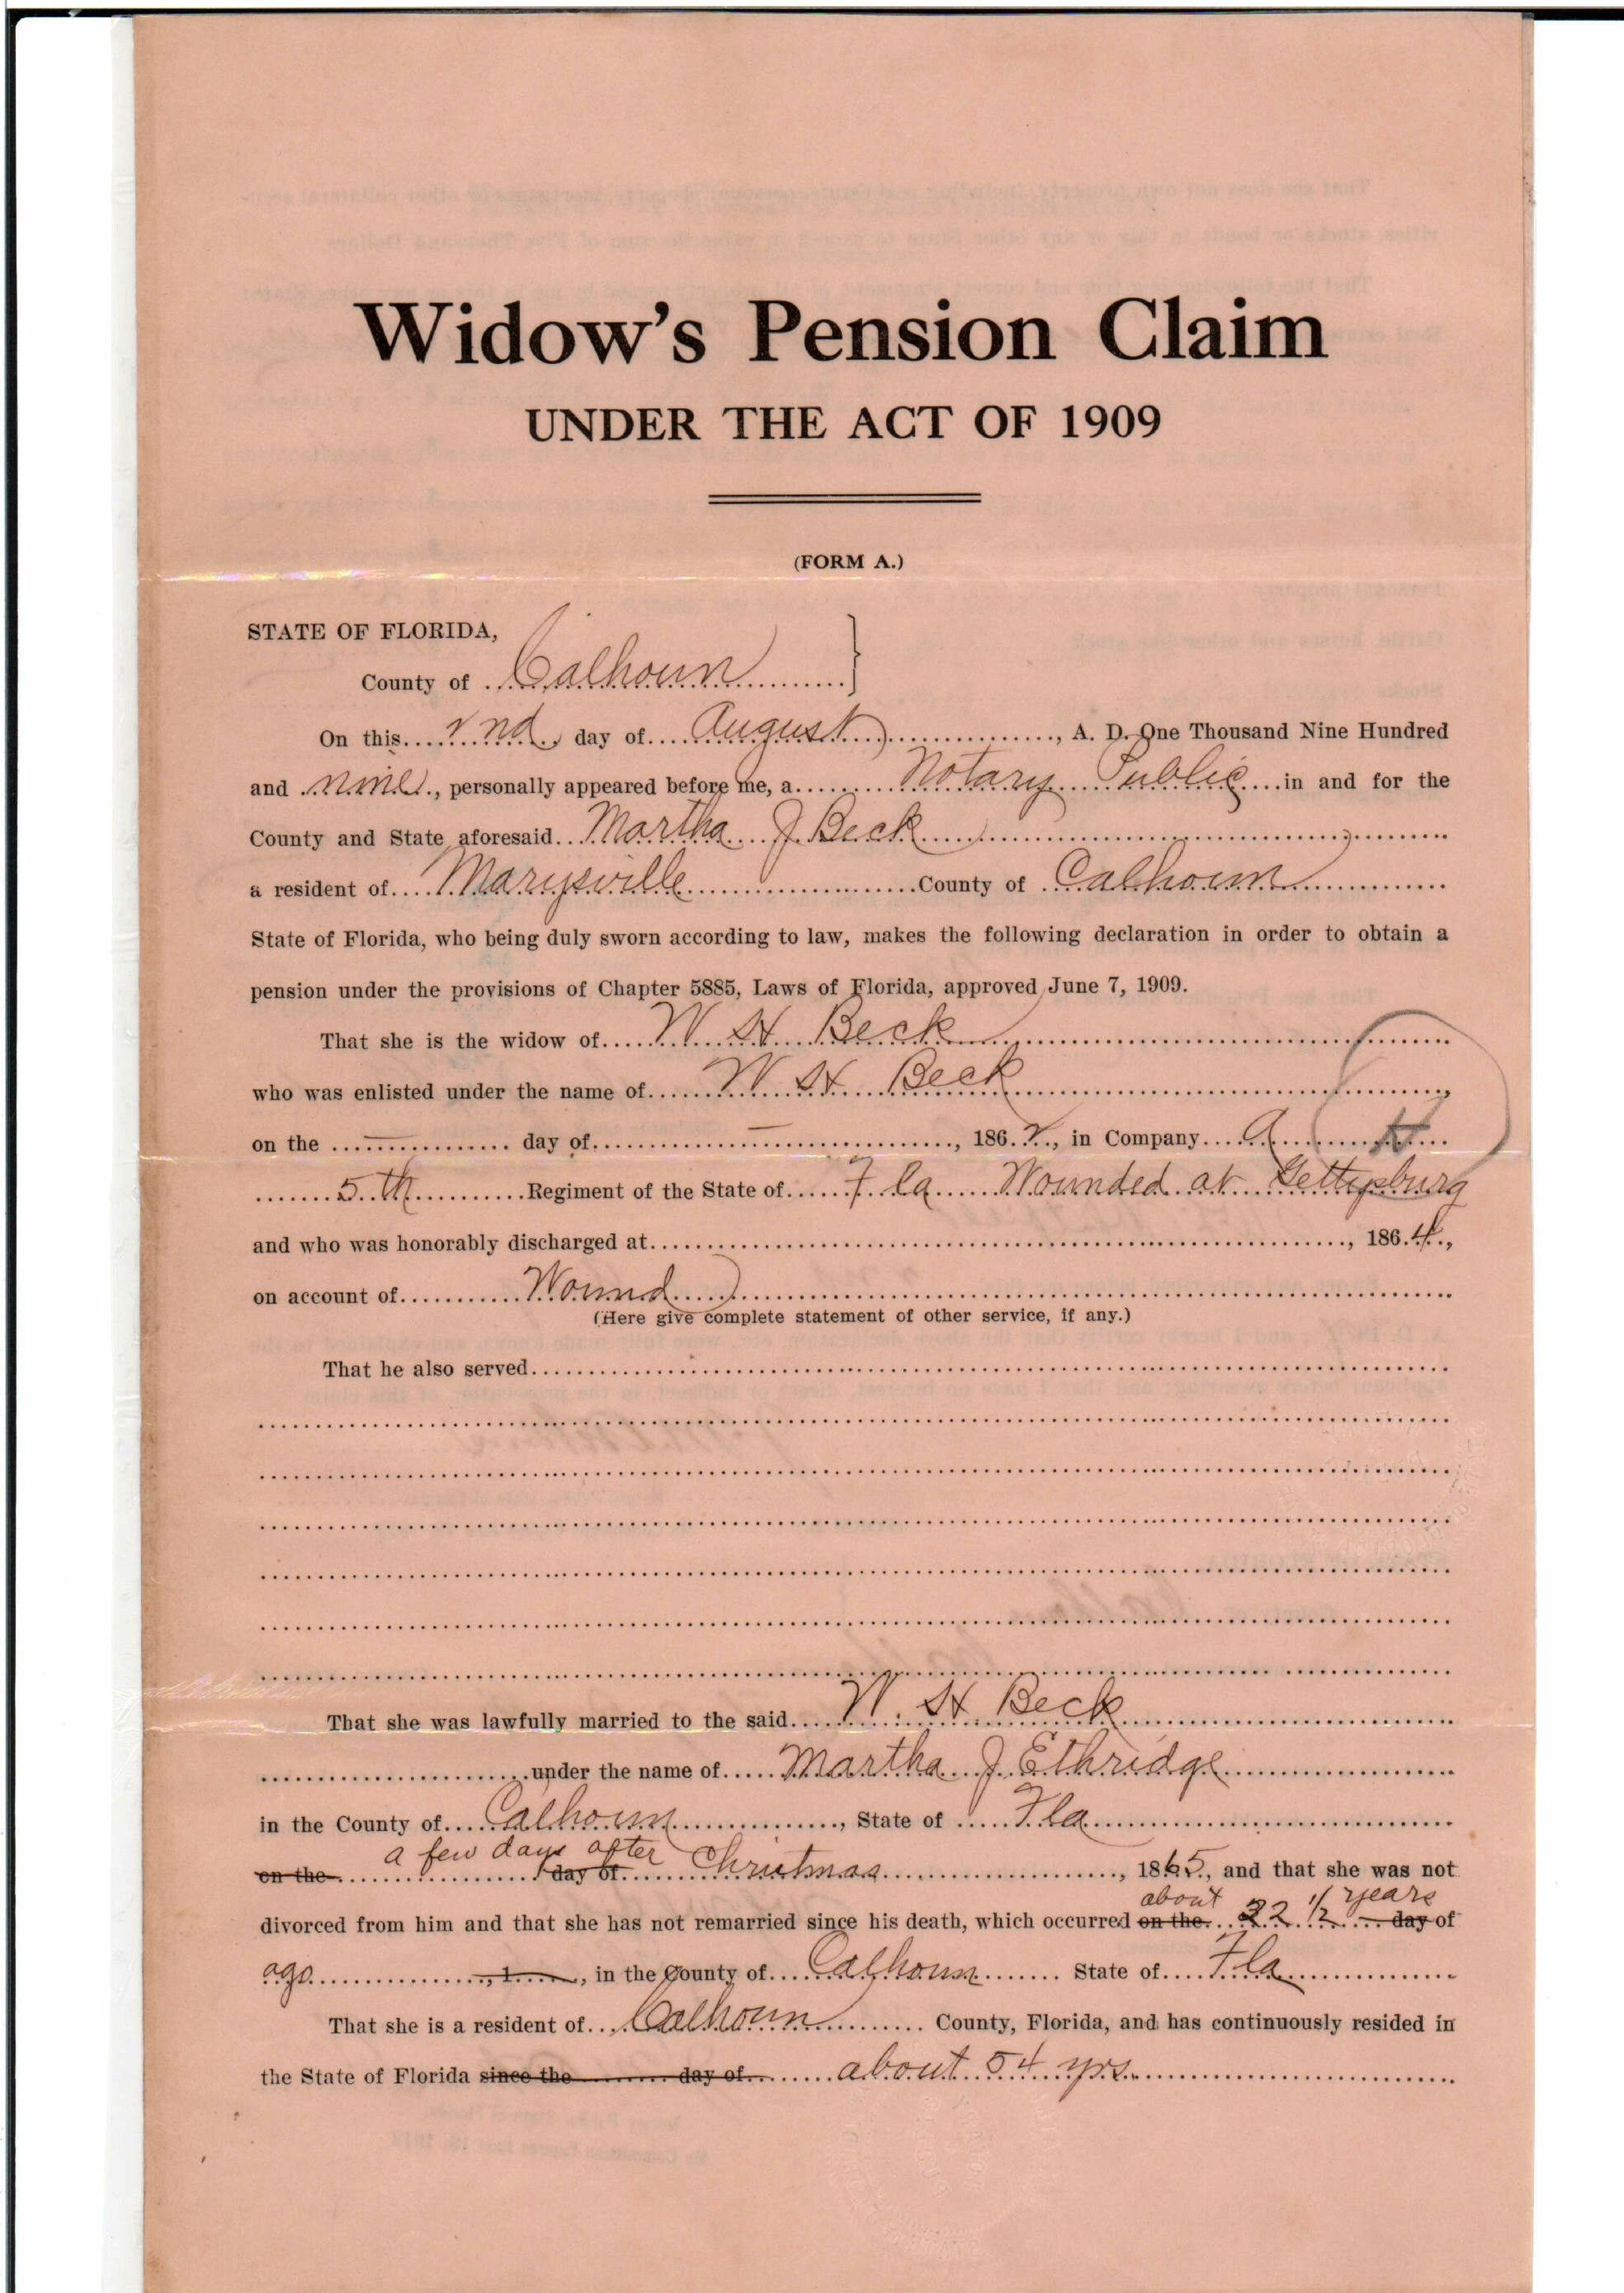 Widow's Pension Claim
UNDER THE ACT OF 1909
(FORM A.)
STATE OF FLORIDA,
County of Calhoun
On this 2nd day of August, A. D. One Thousand Nine Hundred
and nine, personally appeared before me, a Notary Public in and for the
County and State aforesaid Martha J Beck
a resident of Marysville County of Calhoun
State of Florida, who being duly sworn according to law, makes the following declaration in order to obtain a
pension under the provisions of Chapter 5885, Laws of Florida, approved June 7, 1909.
That she is the widow of W H Beck
who was enlisted under the name of W H Beck
on the — day of —, 1862, in Company A H
5th Regiment of the State of Fla Wounded at Gettysburg
and who was honorably discharged at, 1864,
on account of Wound
(Here give complete statement of other service, if any.)
That he also served
That she was lawfully married to the said W H Beck
under the name of Martha J Ethridge
in the County of Calhoun, State of Fla
a few days after
on the day of Christmas, 1865, and that she was not
about years
divorced from him and that she has not remarried since his death, which occurred on the 22 1/2 day of
ago, 1, in the County of Calhoun State of Fla
That she is a resident of Calhoun County, Florida, and has continuously resided in
the State of Florida since the day of about 54 yrs.